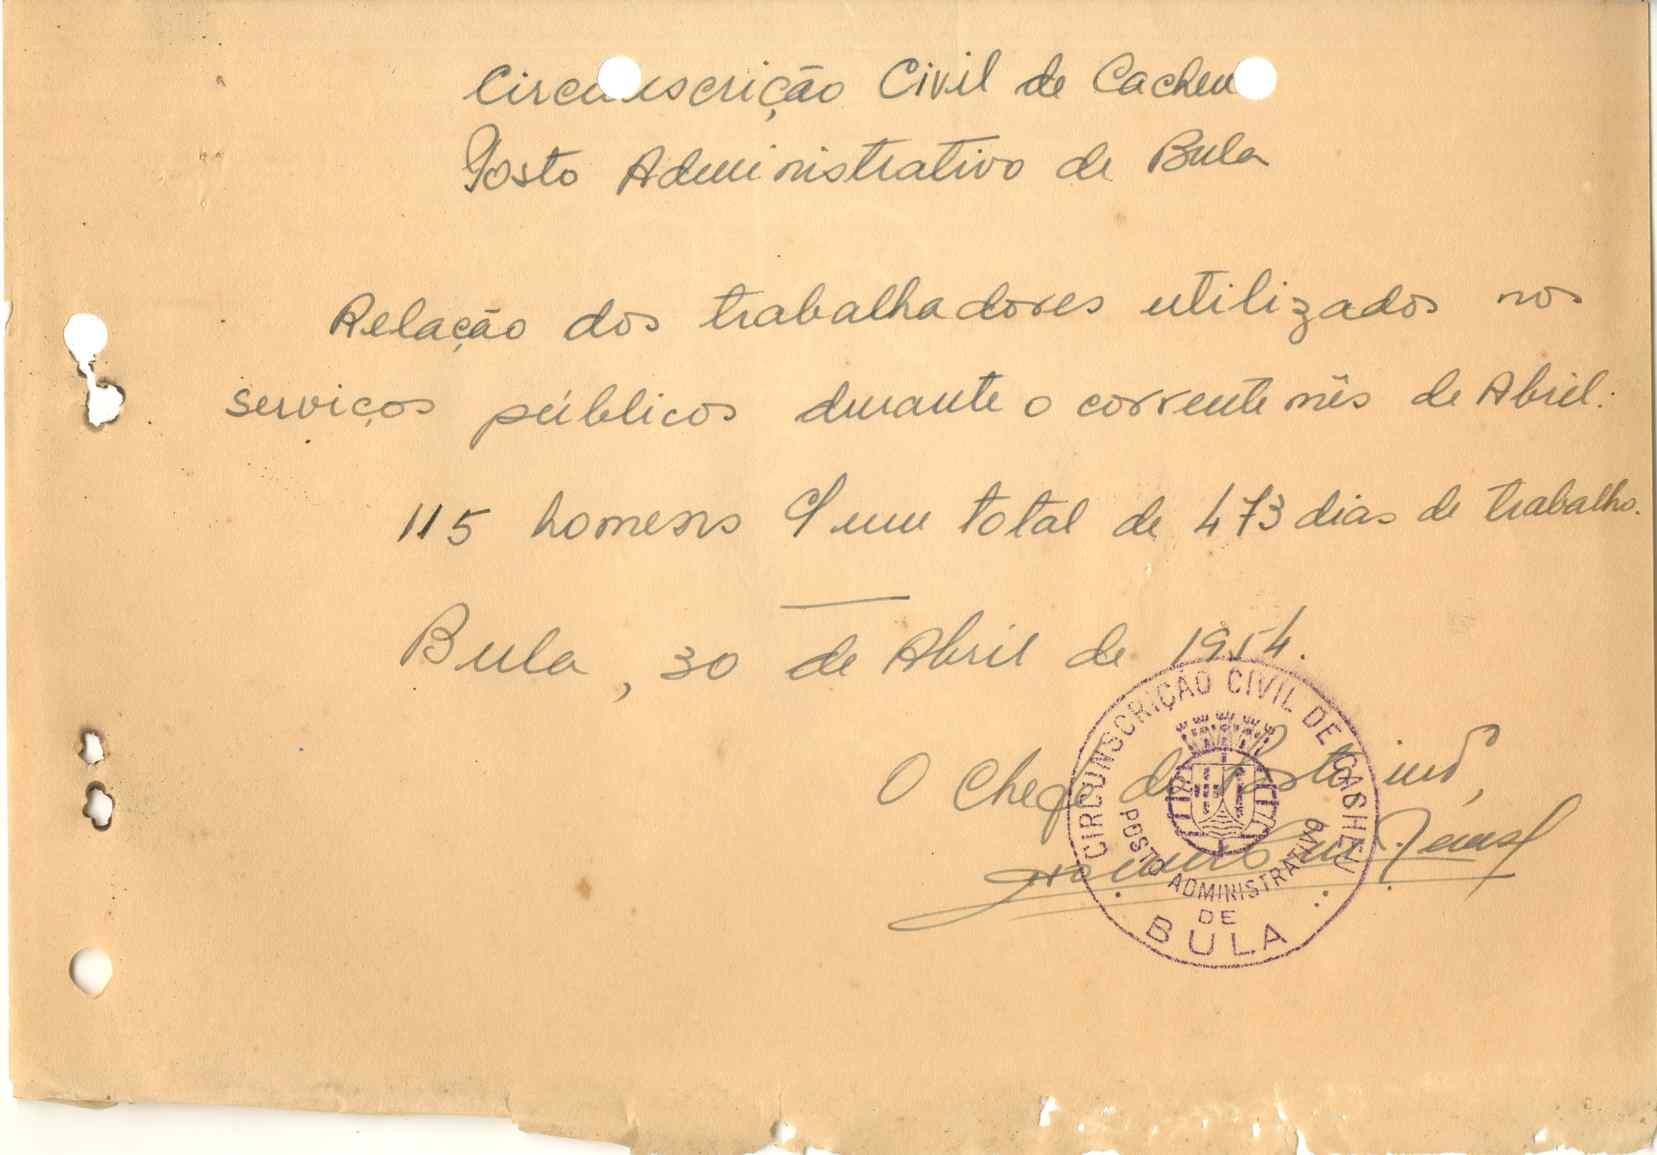 Circunscrição Civil de Cacheu
Posto Administrativo de Bula
Relação dos trabalhadores utilizados nos
serviços públicos durante o corrente mês de Abril:
115 homens num total de 473 dias de trabalho.
Bula, 30 de Abril de 1954.
O Chefe do Posto, intº,
CIRCUNSCRIÇÃO CIVIL DE CACHEU
POSTO ADMINISTRATIVO
DE
BULA